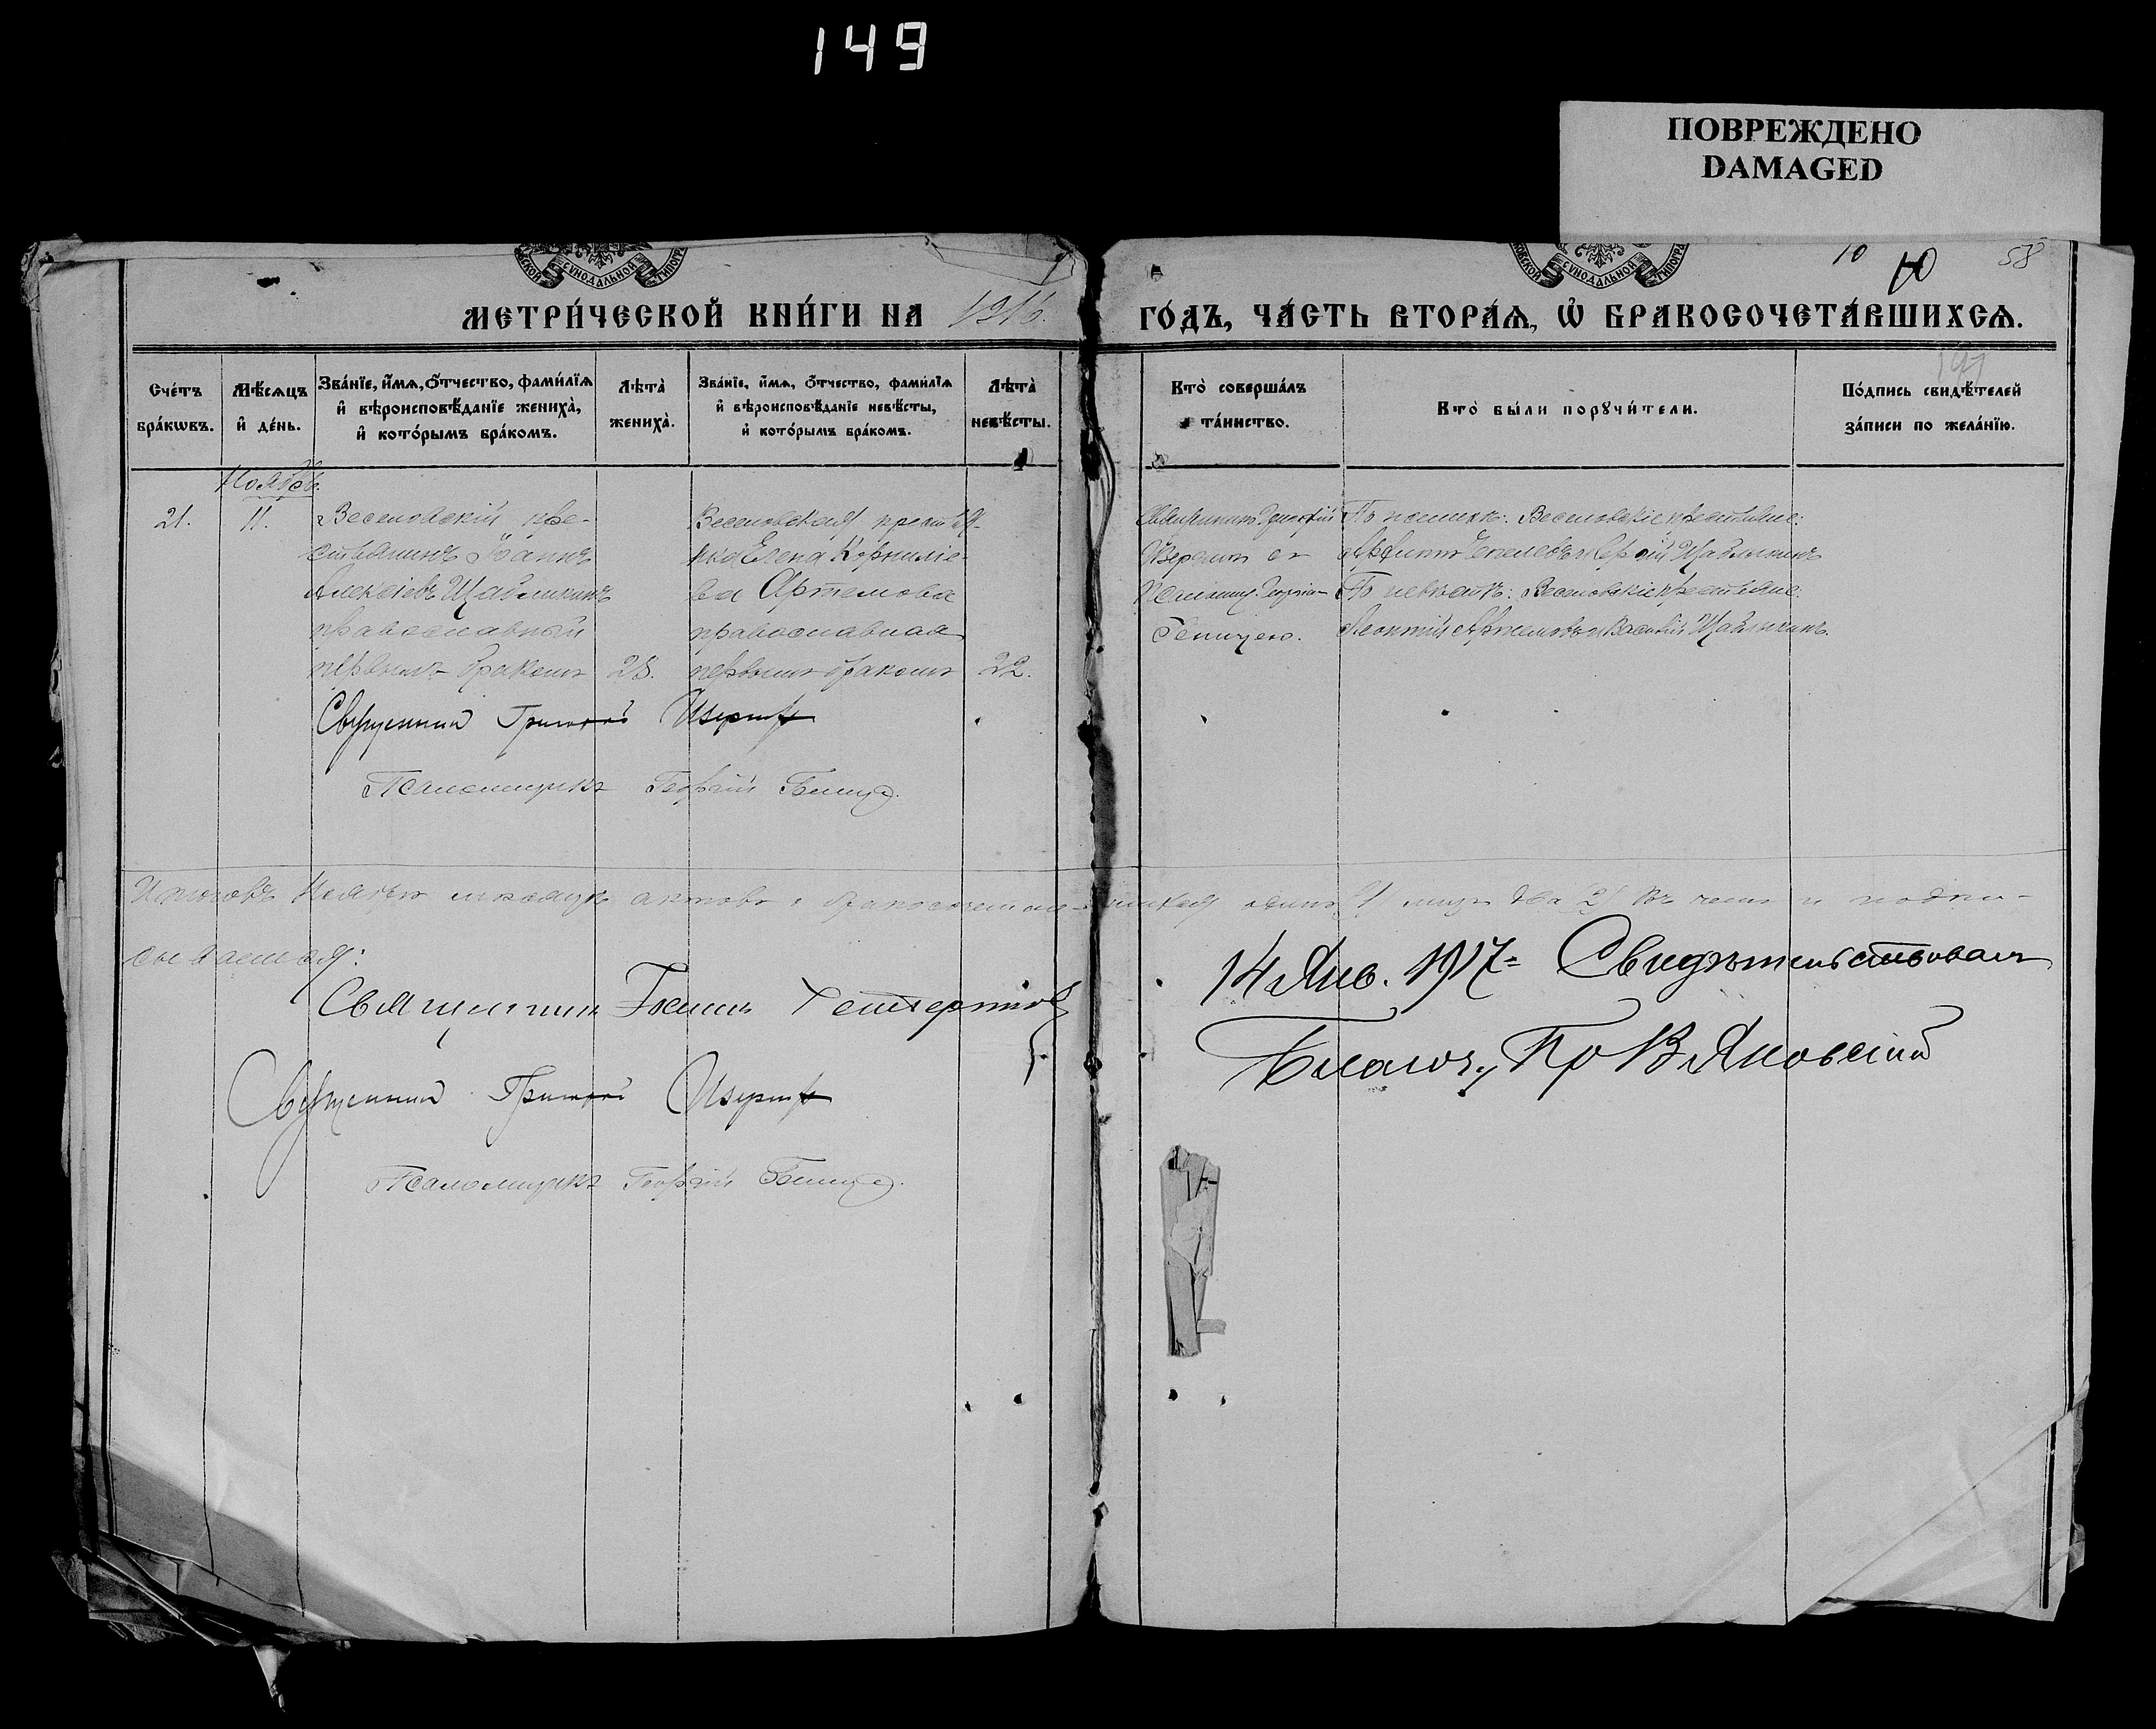 149
ПОВРЕЖДЕНО
DAMAGED
СУНОДАЛЬНОЙ
СУНОДАЛЬНОЙ
10 10 58
МЕТРИ́ЧЕСКОЙ КНИ́ГИ НА 1916.
ГО́ДЪ, ЧА́СТЬ ВТОРА́Ѧ, Ѽ БРАКОСОЧЕТА́ВШИХСѦ.
197
Сче́тъ бра́кѡвъ.
Мѣ́сѧцъ и҆ де́нь.
Зва́нїе, и҆́мѧ, ѻ҆́тчество, фами́лїѧ и҆ вѣроисповѣ́данїе жениха̀, и҆ кото́рымъ бра́комъ.
Лѣта̀ жениха̀.
Зва́нїе, и҆́мѧ, ѻ҆́тчество, фами́лїѧ и҆ вѣроисповѣ́данїе невѣ́сты, и҆ кото́рымъ бра́комъ.
Лѣта̀ невѣ́сты.
Кто̀ соверша́лъ та́инство.
Кто̀ бы́ли порꙋчи́тели.
По́дпись свидѣ́телей за́писи по жела́нїю.
Ноябрь.
21. 11.
Веселовскій кре-
стьянинъ Іоаннъ
Алексіевъ Шаблыкинъ
православный
первымъ бракомъ 28.
Веселовская крестья-
нка Елена Корниліе-
ва Артемова
православная
первымъ бракомъ 22.
Священникъ Григорій
съ
Псаломщ. Георгіемъ
По женихѣ: Веселовскіе крестьяне:
и Сергій Шаблыкинъ
По невѣстѣ: Веселовскіе крестьяне:
Леонтій Артемовъ и Василій Шаблыкинъ.
Священникъ Григорій
Псаломщикъ Георгій
Ноябрѣ мѣсяцѣ актовъ о бракосочетав-шихся одинъ /1/ лицъ два /2/ въ чемъ и подпи-
сываемся:
Священникъ Іоаннъ
Священникъ Григорій
Псаломщикъ Георгій
14 Янв. 1917 = Свидѣтельствовалъ
Благоч., Пр В Яновскій